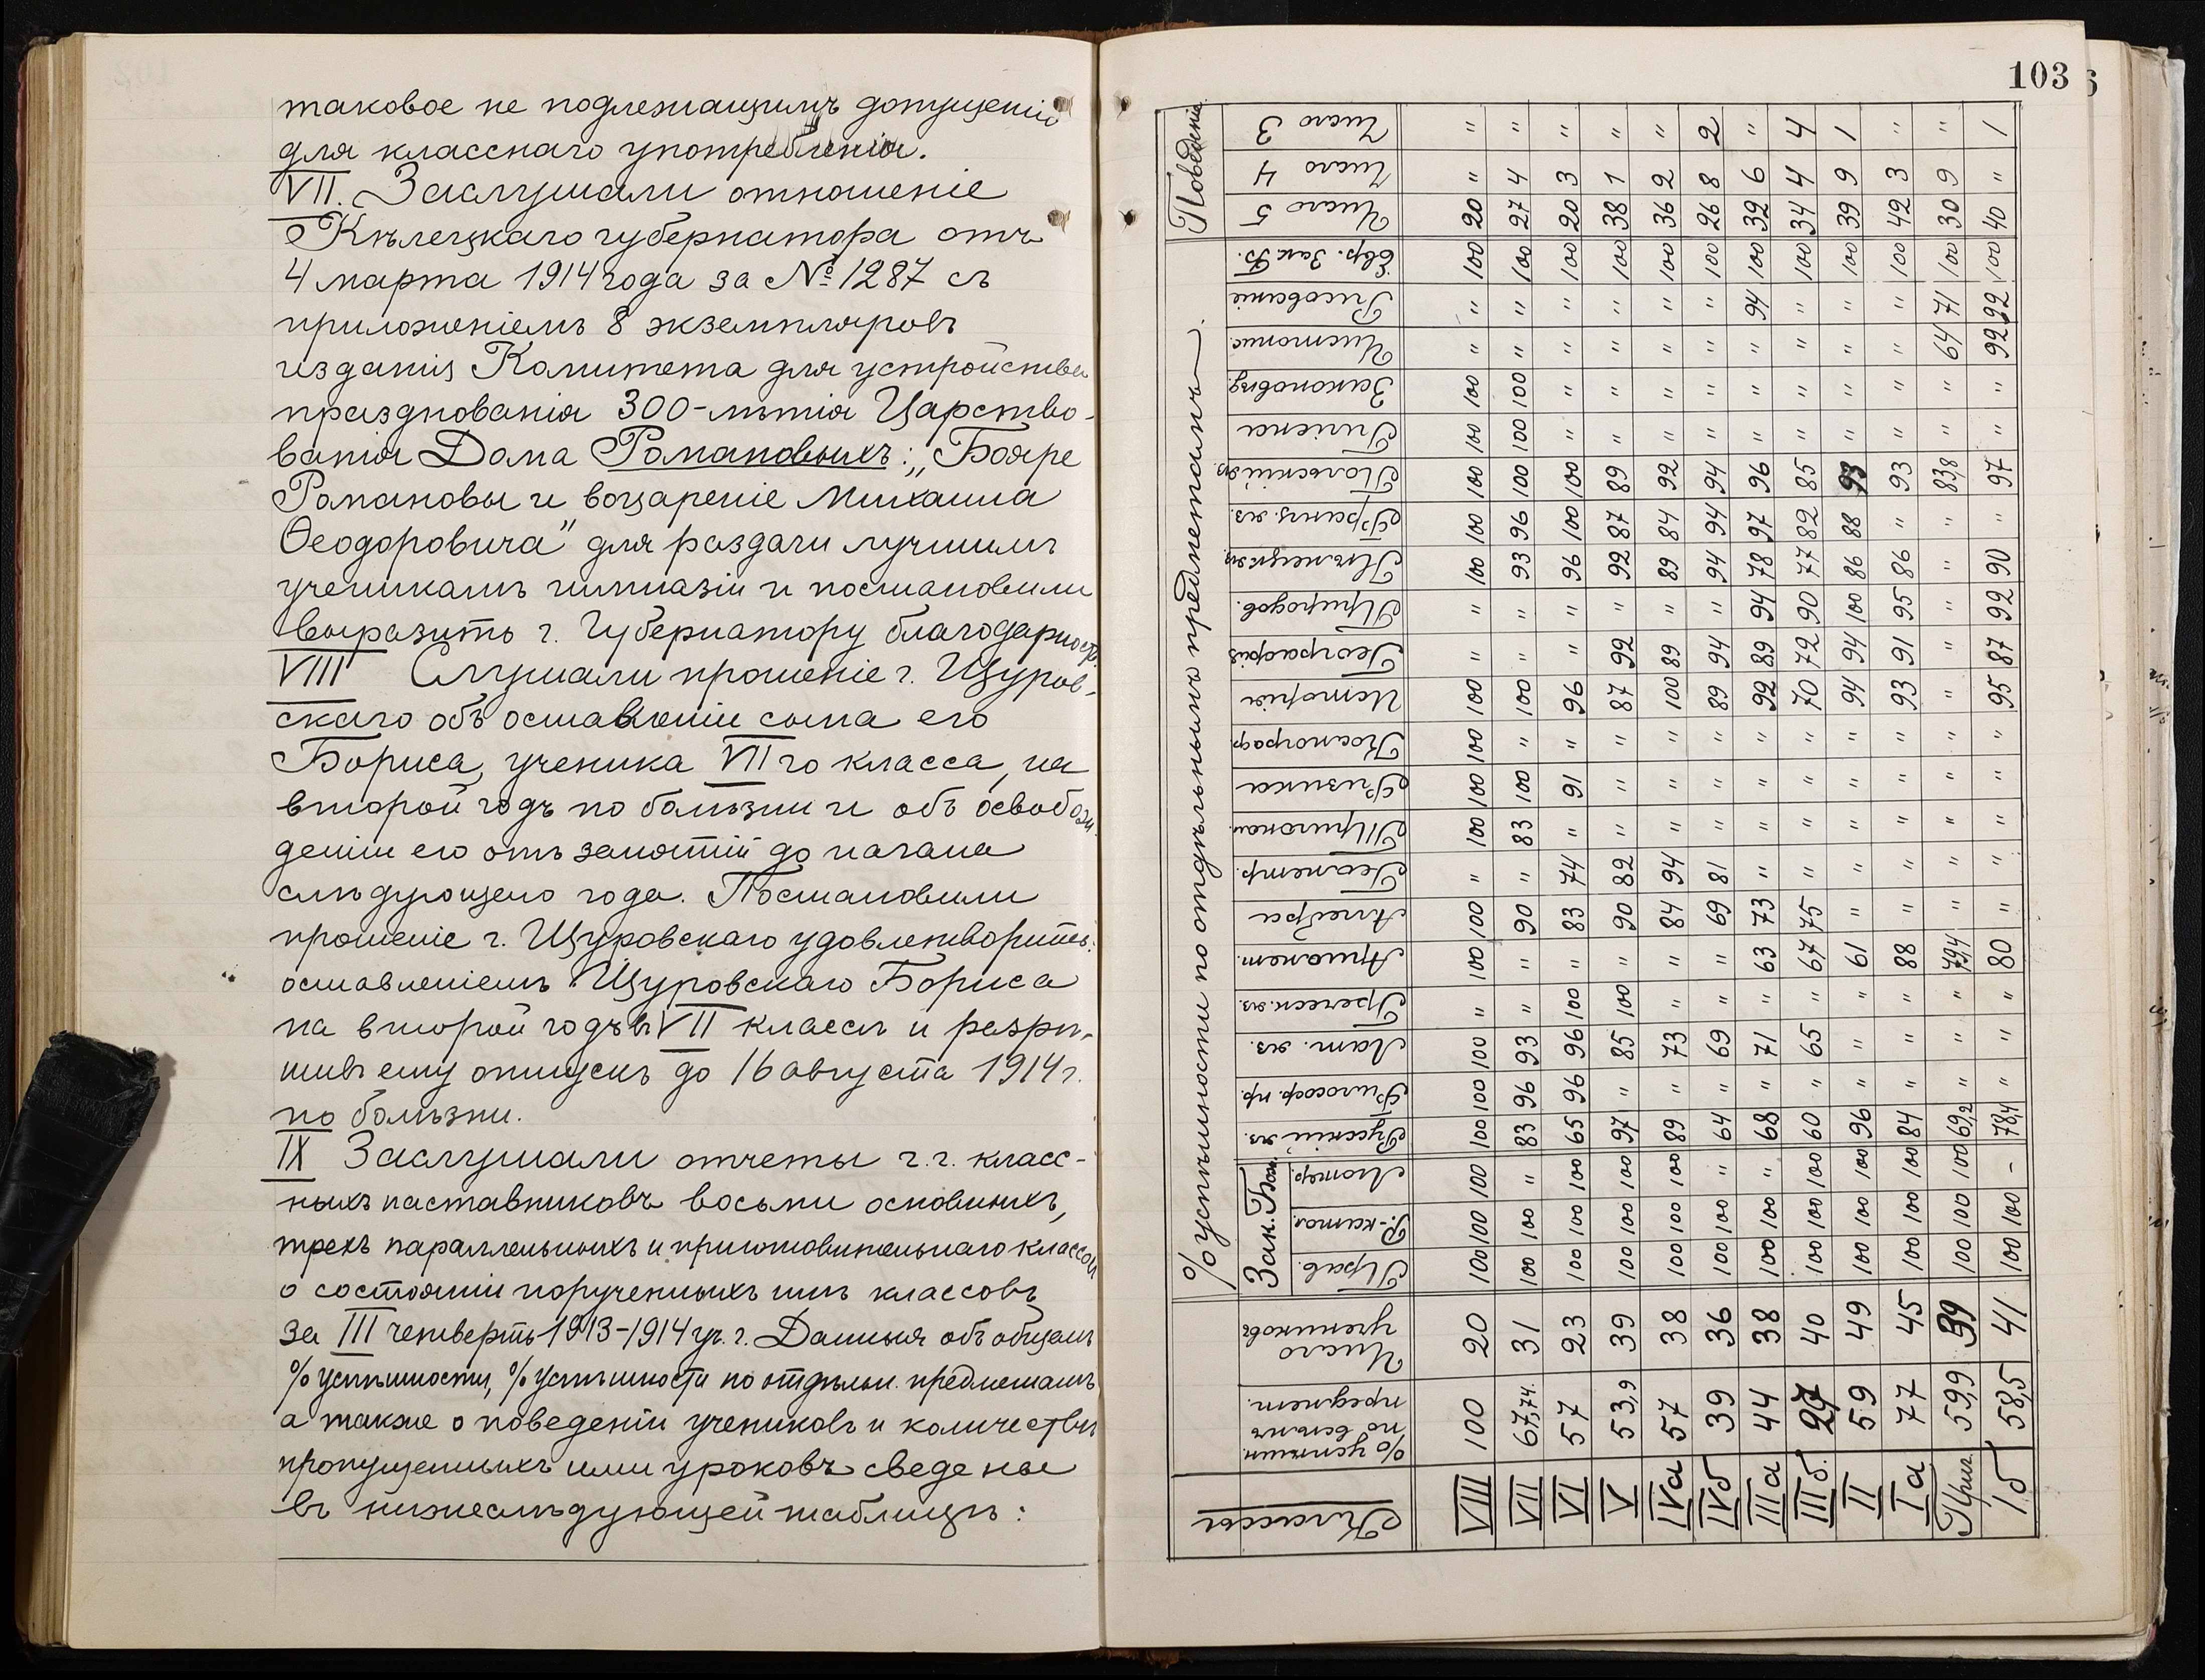 таковое не подлежащимъ допущенію
для класснаго употребленія.
VII. Заслушали отношеніе
Кѣлецкаго губернатора отъ
4 марта 1914 года за № 1287 съ
приложеніемъ 8 экземпляровъ
изданія Комитета для устройства
празднованія 300-лѣтія Царство-
ванія Дома Романовыхъ: „Бояре
Романовы и воцареніе Михаила
Ѳеодоровича" для раздачи лучшимъ
ученикамъ гимназіи и постановили
выразить г. Губернатору благодарность.
VIII Слушали прошеніе г. Щуров-
скаго объ оставленіи сына его
Бориса, ученика VII го класса, на
второй годъ по болѣзни и объ освобож-
деніи его отъ занятій до начала
слѣдующаго года. Постановили
прошеніе г. Щуровскаго удовлетворить:
оставленіемъ Щуровскаго Бориса
на второй годъ въ VII классѣ и разрѣ-
шивъ ему отпускъ до 16 августа 1914 г.
по болѣзни.
IX Заслушали отчеты г.г. класс-
ныхъ наставниковъ восьми основныхъ,
трехъ параллельныхъ и приготовительнаго классовъ
о состояніи порученныхъ имъ классовъ
за III четверть 1913-1914 уч. г. Данныя объ общемъ
% успѣшности, % успѣшности по отдѣльн. предметамъ
а также о поведеніи учениковъ и количествѣ
пропущенныхъ ими уроковъ сведены
въ нижеслѣдующей таблицѣ:
103
% успѣшности по отдѣльнымъ предметамъ Поведеніе
Классы % успѣшн. по всѣмъ предмет. Число учениковъ Зак. Бож. Прав. Р.-катол. Лютер. Русскій яз. Философ. пр. Лат. яз. Греческ. яз. Ариѳмет. Алгебра Геометр. Тригоном. Физика Космограф. Исторія Географія Природов. Нѣмецк. яз. Франц. яз. Польскій яз. Гигіена Законовѣд. Чистопис. Рисованіе Евр. Зак. Б. Число 5 Число 4 Число 3
VIII 100 20 100 100 100 100 100 100 " 100 100 " 100 100 100 100 " " 100 100 100 100 100 " " 100 20 " "
VII 67,74. 31 100 100 " 83 96 93 " " 90 " 83 100 " 100 " " 93 96 100 100 100 " " 100 27 4 "
VI 57 23 100 100 100 65 96 96 100 " 83 74 " 91 " 96 " " 96 100 100 " " " " 100 20 3 "
V 53,9 39 100 100 100 97 " 85 100 " 90 82 " " " 87 92 " 92 87 89 " " " " 100 38 1 "
IVа 57 38 100 100 100 89 " 73 " " 84 94 " " " 100 89 " 89 84 92 " " " " 100 36 2 "
IVб 39 36 100 100 " 64 " 69 " " 69 81 " " " 89 94 " 94 94 94 " " " " 100 26 8 2
IIIа 44 38 100 100 " 68 " 71 " 63 73 " " " " 92 89 94 78 97 96 " " " 94 100 32 6 "
IIIб. 27 40 100 100 100 60 " 65 " 67 75 " " " " 70 72 90 77 82 85 " " " " 100 34 4 4
II 59 49 100 100 100 96 " " " 61 " " " " " 94 94 100 86 88 93 " " " " 100 39 9 1
Iа 77 45 100 100 100 84 " " " 88 " " " " " 93 91 95 86 " 93 " " " " 100 42 3 "
Приг. 59,9 39 100 100 100 69,2 " " " 79,4 " " " " " " " " " " 83,8 " " 64 71 100 30 9 "
Iб 58,5 41 100 100 - 78,4 " " " 80 " " " " " 95 87 92 90 " 97 " " 92 92 100 40 " 1